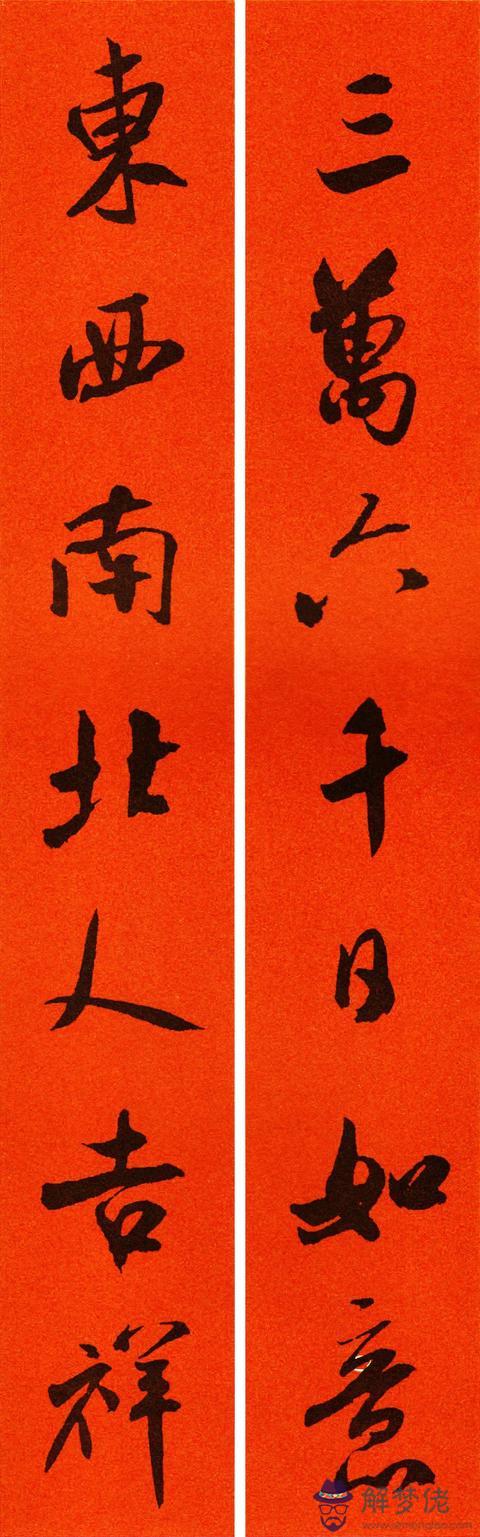 三萬六千日如意
東西南北人吉祥
解梦佬